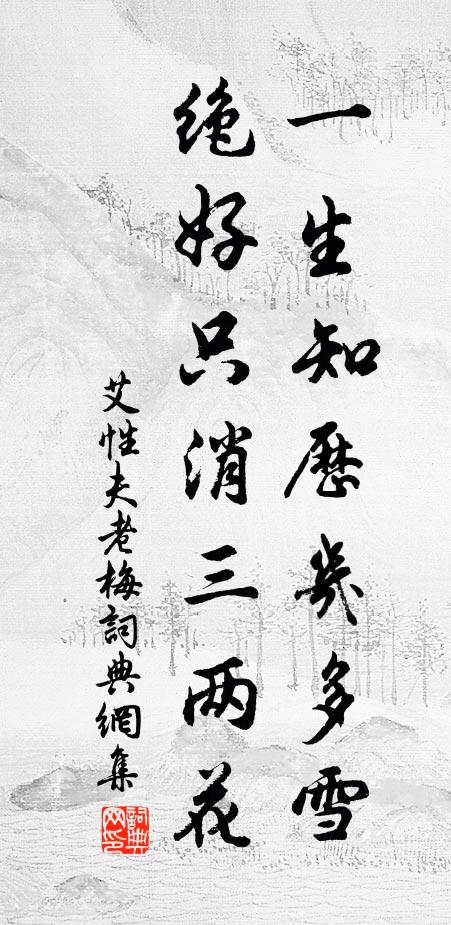 一生知歷幾多雪
绝好只消三两花
艾性夫老梅詞典網集
詞典网印